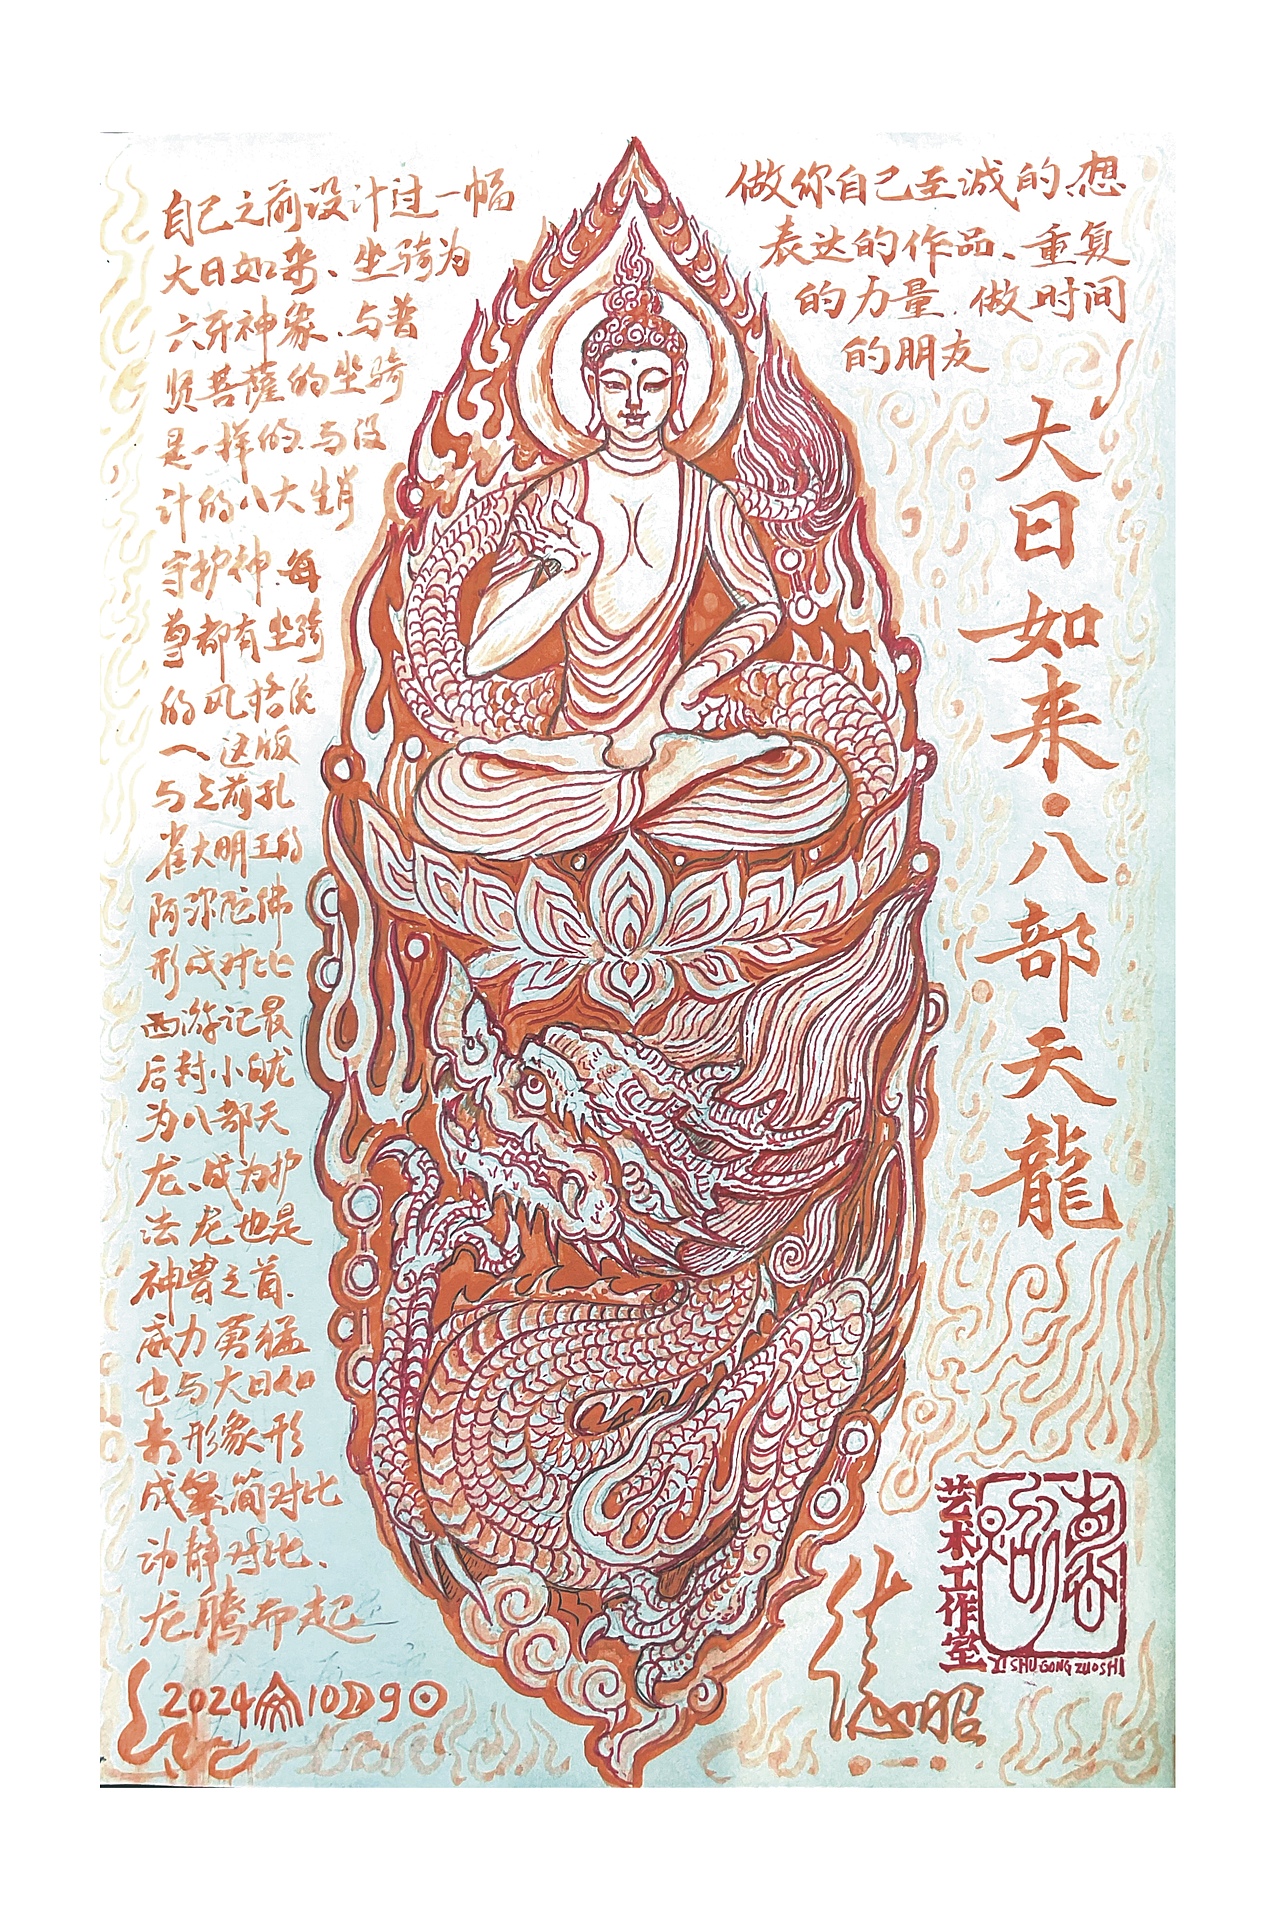 自己之前设计过一幅
大日如来、坐骑为
六牙神象、与普
贤菩萨的坐骑
是一样的.与设
计的八大生肖
守护神.每
尊都有坐骑
的风格统
一、这版
与之前孔
雀大明王的
阿弥陀佛
形成对比
西游记最
后封小白龙
为八部天
龙、成为护
法龙也是
神兽之首.
威力勇猛
也与大日如
来形象形
成繁简对比
动静对比、
龙腾而起
2024年10月9日
做你自己至诚的.想
表达的作品、重复
的力量.做时间
的朋友
大日如来·八部天龍
艺术工作室
YISHUGONGZUOSHI